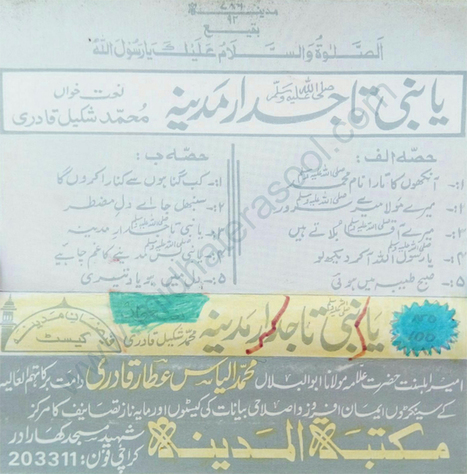 مدینہ
۷۸۶
۹۲
بقیع
الصَّلوٰةُ وَالسَّلَامُ عَلَیْكَ یَارَسُوْلَ اللّٰهُ
یا نبی ﷺ تاجدارِ مدینہ
نعت خواں
محمد شکیل قادری
حصہ الف:
۱:- آنکھوں کا تارا نام محمد ﷺ
۲:- میرے مولا میرے سرور ﷺ
۳:- میرے آقا ﷺ بلاتے ہیں
۴:- یارسول اللہ ﷺ آکر دیکھ لو
۵:- صبح طیبہ میں ہوئی
حصہ ب:
۱:- کب گناہوں سے کنارا کروں گا
۲:- سنبھل جا اے دلِ مضطر
۳:- یا نبی ﷺ تاجدارِ مدینہ
۴:- یا نبی ﷺ بس مدینے کا غم چاہیے
۵:- دل میں ہو یاد تیری
یا نبی ﷺ تاجدارِ مدینہ
محمد شکیل قادری
کیسٹ
100
امیر اہلسنت حضرت علامہ مولانا ابو البلال محمد الیاس عطار قادری دامت برکاتہم العالیہ
کے سینکڑوں ایمان افروز و اصلاحی بیانات کی کیسٹوں اور مایہ ناز تصانیف کا مرکز
مکتبة المدینہ
شہید مسجد کھارادر
کراچی فون: 203311